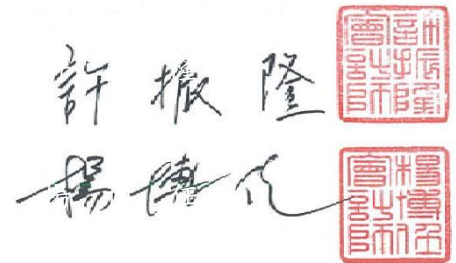 許振隆
許振隆會計師
楊博任
楊博任會計師